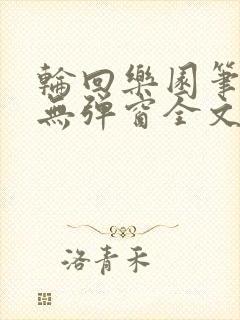 輪回樂園筆
無彈窗全文
洛青禾